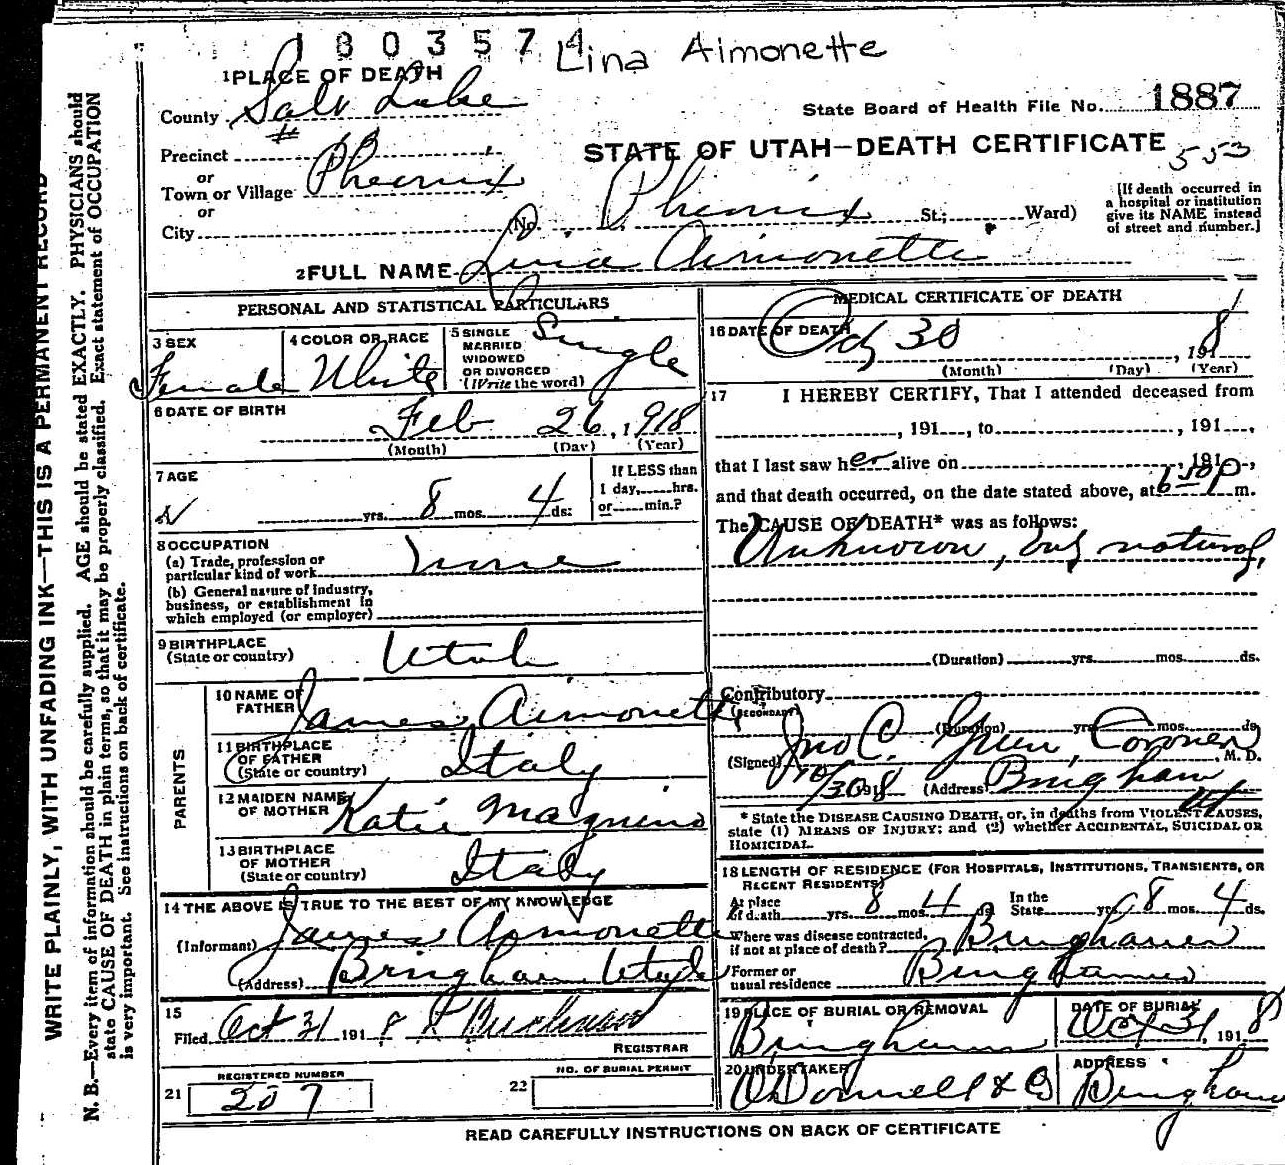 1803574 Lina Aimonette
1 PLACE OF DEATH
County Salt Lake
State Board of Health File No. 1887
STATE OF UTAH—DEATH CERTIFICATE
553
Precinct
or
Town or Village Pheonix
or
City
(No. Phenix St.; Ward)
[If death occurred in
a hospital or institution
give its NAME instead
of street and number.]
2 FULL NAME Lina Aimonette
PERSONAL AND STATISTICAL PARTICULARS
3 SEX
Female
4 COLOR OR RACE
White
5 SINGLE
MARRIED
WIDOWED
OR DIVORCED
(Write the word)
Single
6 DATE OF BIRTH
Feb 26, 1918
(Month) (Day) (Year)
7 AGE
yrs. 8 mos. 4 ds.
If LESS than
1 day, hrs.
or min.?
8 OCCUPATION
(a) Trade, profession or
particular kind of work none
(b) General nature of industry,
business, or establishment in
which employed (or employer)
9 BIRTHPLACE
(State or country) Utah
PARENTS
10 NAME OF
FATHER James Aimonette
11 BIRTHPLACE
OF FATHER
(State or country) Italy
12 MAIDEN NAME
OF MOTHER Katie Magnino
13 BIRTHPLACE
OF MOTHER
(State or country) Italy
14 THE ABOVE IS TRUE TO THE BEST OF MY KNOWLEDGE
(Informant) James Aimonette
(Address) Bingham Utah
15
Filed Oct 31 1918
REGISTRAR
21 REGISTERED NUMBER
207
22 NO. OF BURIAL PERMIT
MEDICAL CERTIFICATE OF DEATH
16 DATE OF DEATH
Oct 30, 1918
(Month) (Day) (Year)
17 I HEREBY CERTIFY, That I attended deceased from
, 191 , to , 191 ,
that I last saw her alive on , 191 ,
and that death occurred, on the date stated above, at 6 50 p m.
The CAUSE OF DEATH* was as follows:
Unknown, but natural,
(Duration) yrs. mos. ds.
Contributory
(SECONDARY)
(Duration) yrs. mos. ds.
(Signed) Jno C. Green, Coroner, M. D.
10/30 1918 (Address) Bingham
Ut
* State the DISEASE CAUSING DEATH, or, in deaths from VIOLENT CAUSES,
state (1) MEANS OF INJURY; and (2) whether ACCIDENTAL, SUICIDAL OR
HOMICIDAL.
18 LENGTH OF RESIDENCE (FOR HOSPITALS, INSTITUTIONS, TRANSIENTS, OR
RECENT RESIDENTS)
At place
of death yrs. 8 mos. 4 ds. In the
State yrs. 8 mos. 4 ds.
Where was disease contracted,
if not at place of death? Bingham
Former or
usual residence Bingham
19 PLACE OF BURIAL OR REMOVAL
Bingham
DATE OF BURIAL
Oct 31, 1918
20 UNDERTAKER
O'Donnell & Co
ADDRESS
Bingham
READ CAREFULLY INSTRUCTIONS ON BACK OF CERTIFICATE
WRITE PLAINLY, WITH UNFADING INK—THIS IS A PERMANENT RECORD
N. B.—Every item of information should be carefully supplied. AGE should be stated EXACTLY. PHYSICIANS should
state CAUSE OF DEATH in plain terms, so that it may be properly classified. Exact statement of OCCUPATION
is very important. See instructions on back of certificate.